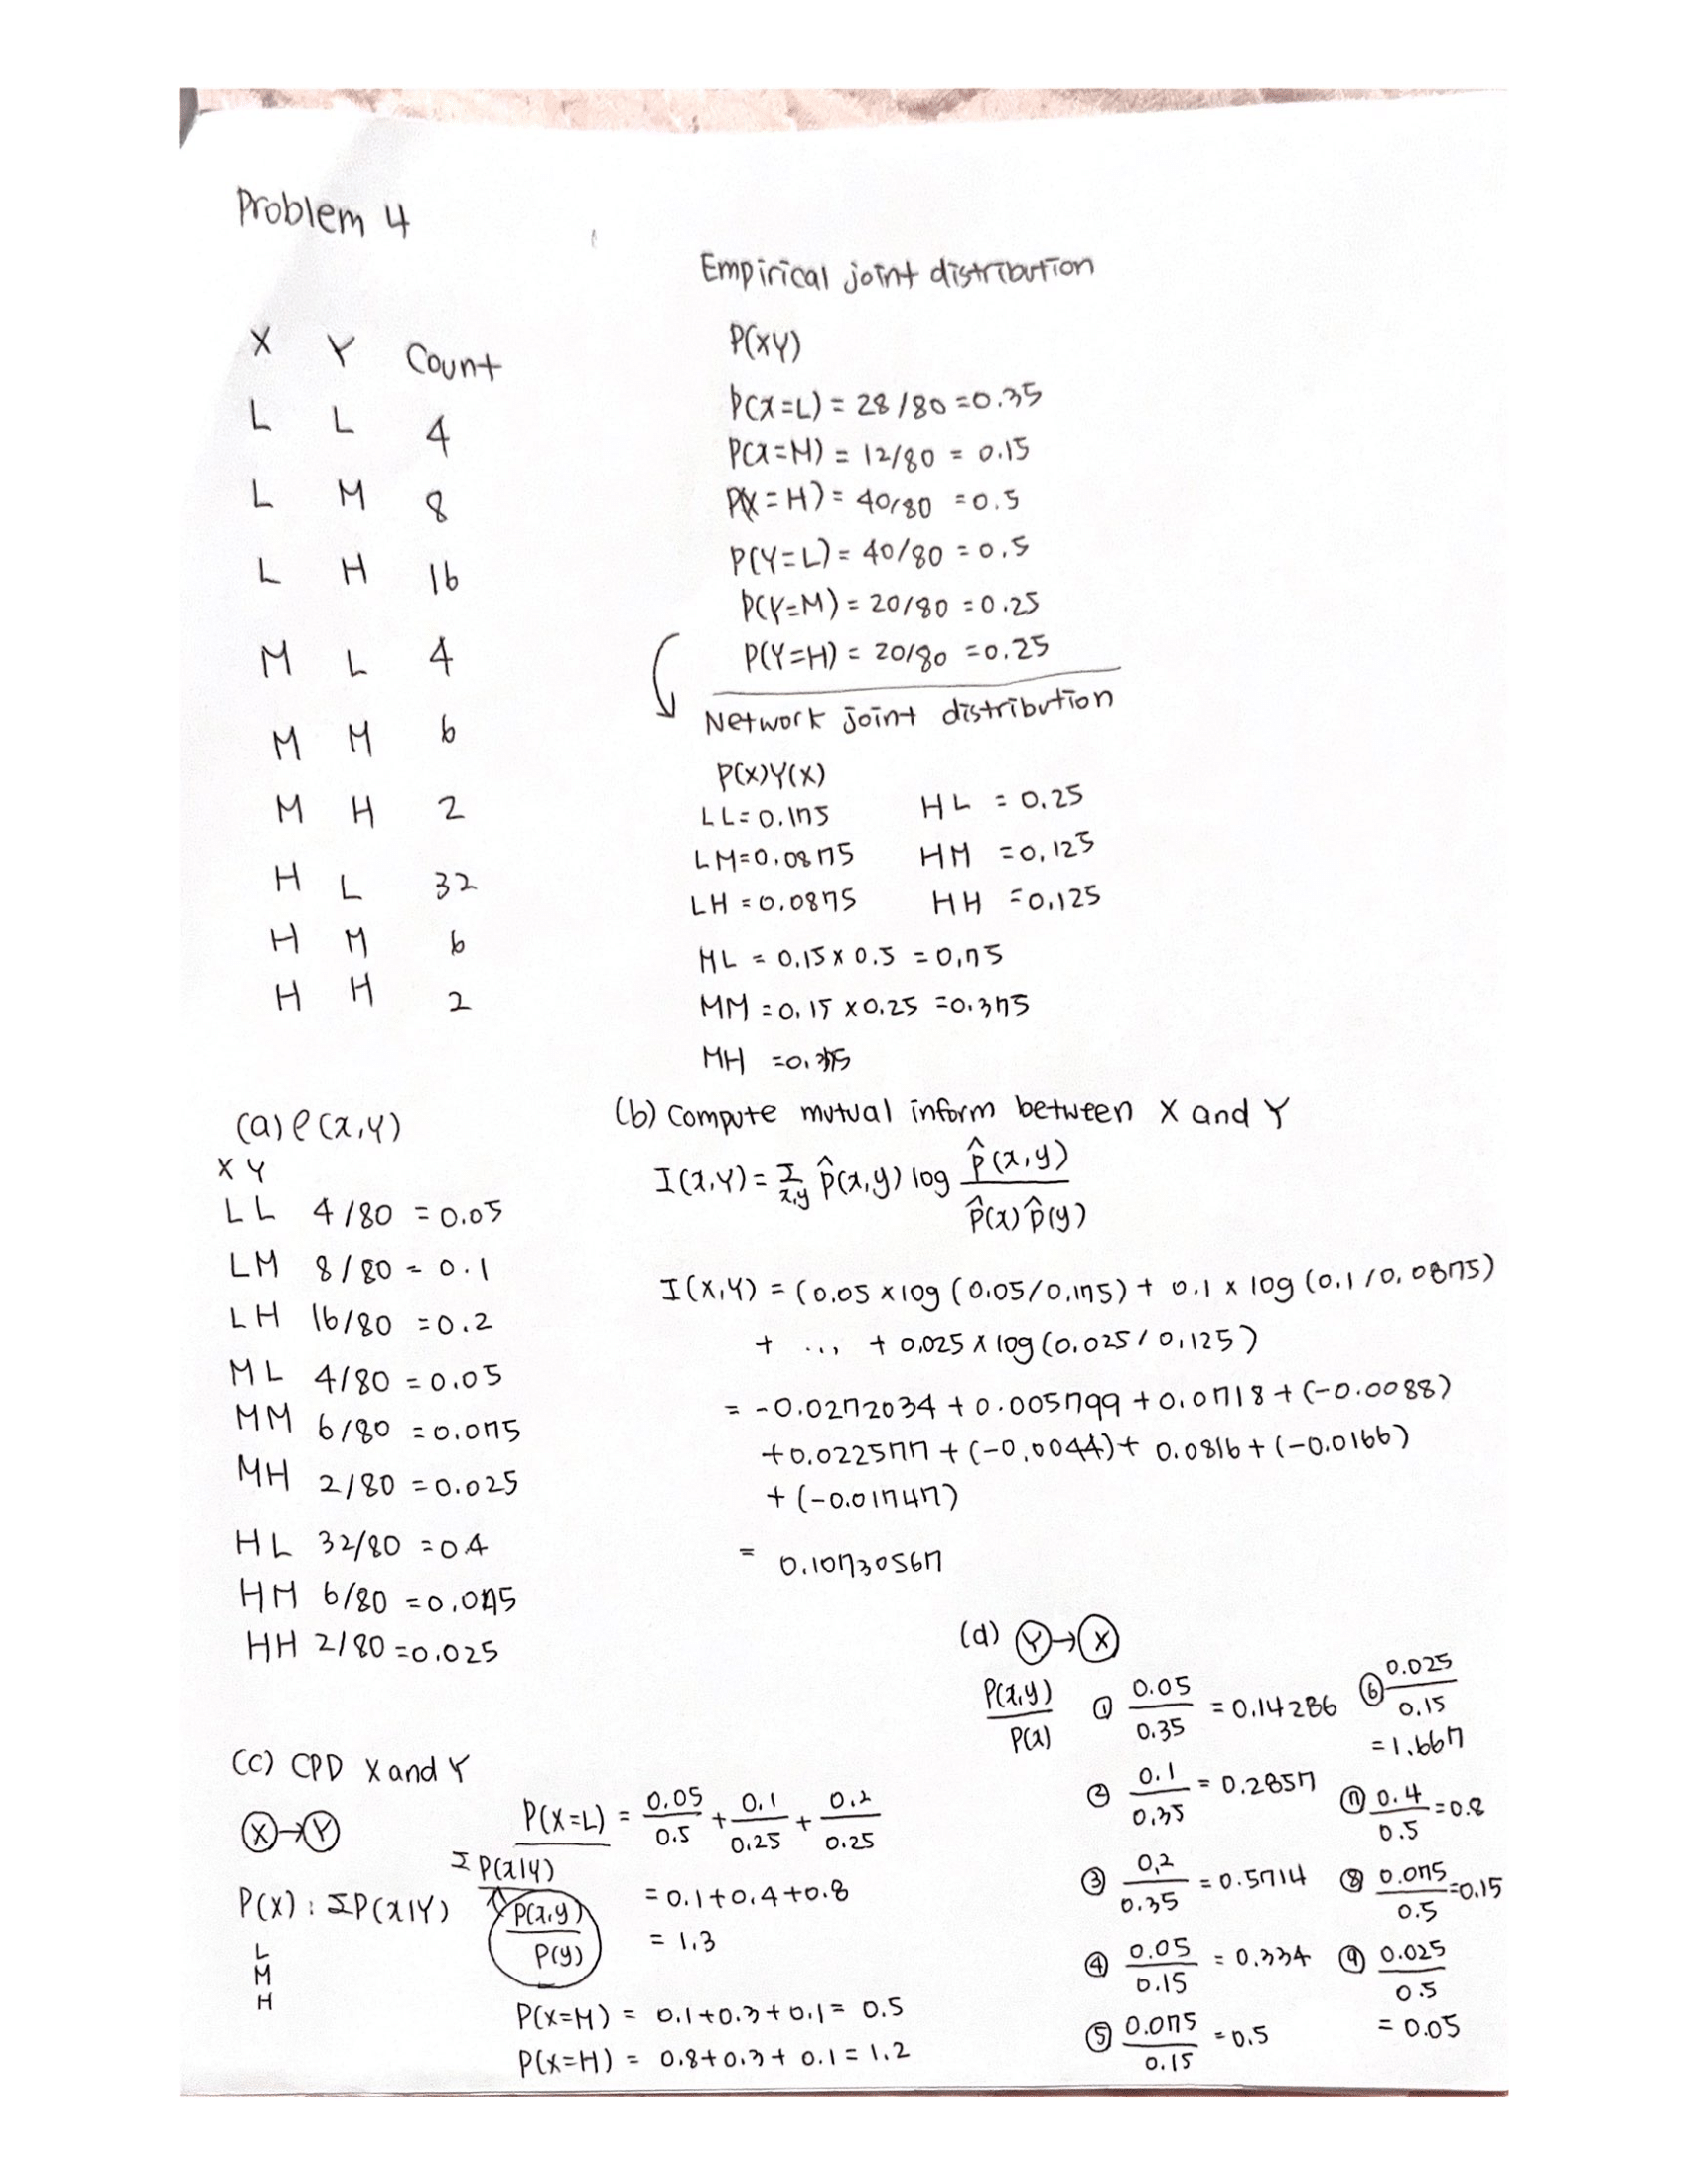 Problem 4
X Y Count
L L 4
L M 8
L H 16
M L 4
M M 6
M H 2
H L 32
H M 6
H H 2
Empirical joint distribution
P(XY)
P(X=L) = 28/80 = 0.35
P(X=M) = 12/80 = 0.15
P(X=H) = 40/80 = 0.5
P(Y=L) = 40/80 = 0.5
P(Y=M) = 20/80 = 0.25
P(Y=H) = 20/80 = 0.25
Network joint distribution
P(X)Y(X)
LL = 0.175 HL = 0.25
LM = 0.0875 HM = 0.125
LH = 0.0875 HH = 0.125
ML = 0.15 x 0.5 = 0.75
MM = 0.15 x 0.25 = 0.375
MH = 0.375
(a) P(X,Y)
X Y
LL 4/80 = 0.05
LM 8/80 = 0.1
LH 16/80 = 0.2
ML 4/80 = 0.05
MM 6/80 = 0.075
MH 2/80 = 0.025
HL 32/80 = 0.4
HM 6/80 = 0.075
HH 2/80 = 0.025
(b) Compute mutual inform between X and Y
I(X,Y) = Σx,y p̂(x,y) log p̂(x,y) / p̂(x) p̂(y)
I(X,Y) = (0.05 x log (0.05/0.175) + 0.1 x log (0.1/0.0875)
+ ... + 0.025 x log (0.025/0.125)
= -0.0272034 + 0.005799 + 0.0718 + (-0.0088)
+ 0.0225777 + (-0.0044) + 0.0816 + (-0.0166)
+ (-0.01747)
= 0.10730567
(c) CPD X and Y
X → Y
P(X) : ΣP(X|Y)
L
M
H
P(X=L) = 0.05/0.5 + 0.1/0.25 + 0.2/0.25
ΣP(X|Y)
P(x,y) / P(y)
= 0.1 + 0.4 + 0.8
= 1.3
P(X=M) = 0.1 + 0.3 + 0.1 = 0.5
P(X=H) = 0.8 + 0.3 + 0.1 = 1.2
(d) Y → X
P(x,y) / P(x)
① 0.05/0.35 = 0.14286
② 0.1/0.35 = 0.2857
③ 0.2/0.35 = 0.5714
④ 0.05/0.15 = 0.334
⑤ 0.075/0.15 = 0.5
⑥ 0.025/0.15
= 1.667
⑦ 0.4/0.5 = 0.8
⑧ 0.075/0.5 = 0.15
⑨ 0.025/0.5
= 0.05